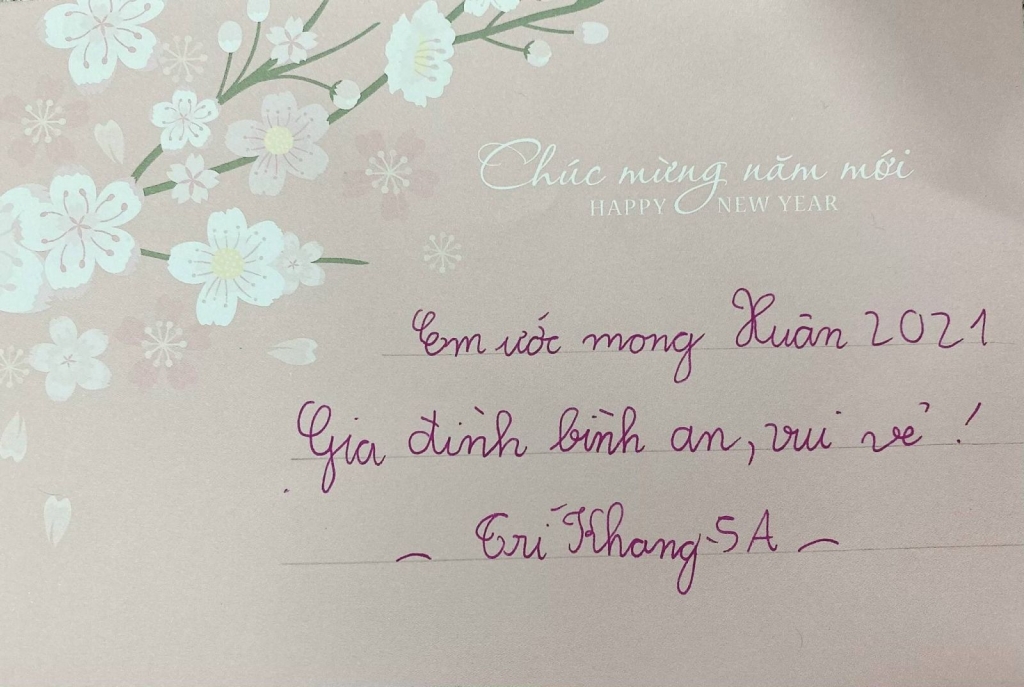 Chúc mừng năm mới
HAPPY NEW YEAR
Em ước mong Xuân 2021
Gia đình bình an, vui vẻ !
~ Trí Khang-5A ~